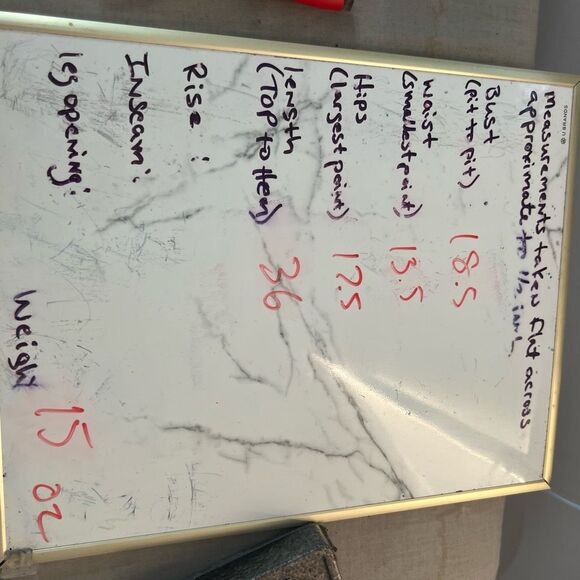 U BRANDS
measurements taken flat across
approximate to 1/2 inch
Bust
(pit to pit) 18.5
waist
(smallest point) 13.5
Hips
(largest point) 17.5
length
(Top to Hem) 36
Rise:
Inseam:
leg opening:
Weight 15 oz